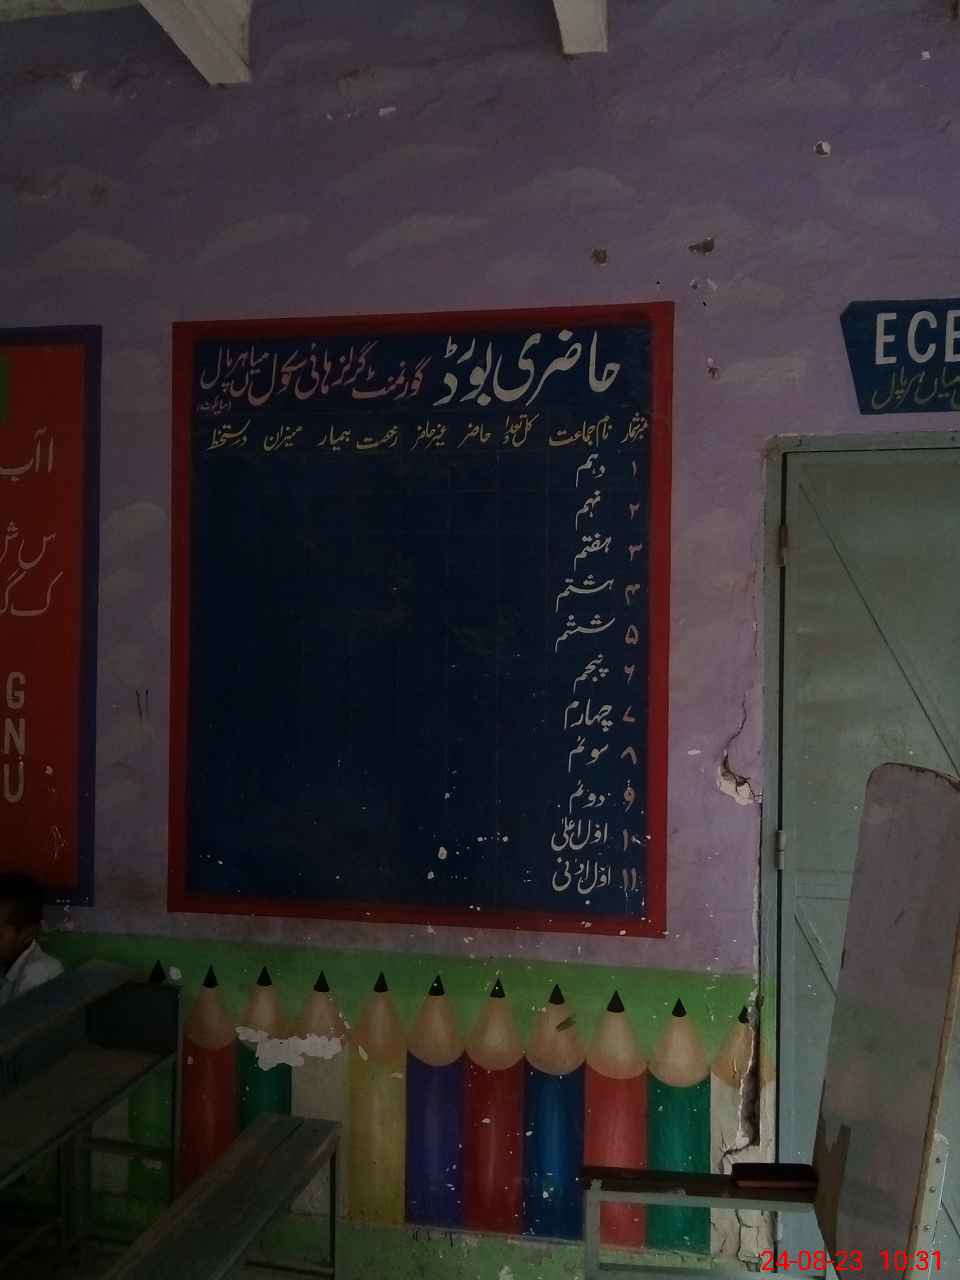 حاضری بورڈ گورنمنٹ گرلز ہائی سکول میاں ہرپال
(سیالکوٹ)
نمبر شمار نام جماعت کل تعداد حاضر غیر حاضر رخصت بیمار میزان دستخط
۱ دہم
۲ نہم
۳ ہفتم
۴ ہشتم
۵ ششم
۶ پنجم
۷ چہارم
۸ سوئم
۹ دوئم
۱۰ اوّل اعلیٰ
۱۱ اوّل ادنیٰ
ECE
میاں ہرپال
ا آ ب
س ش
ک گ
G
N
U
24-08-23 10:31